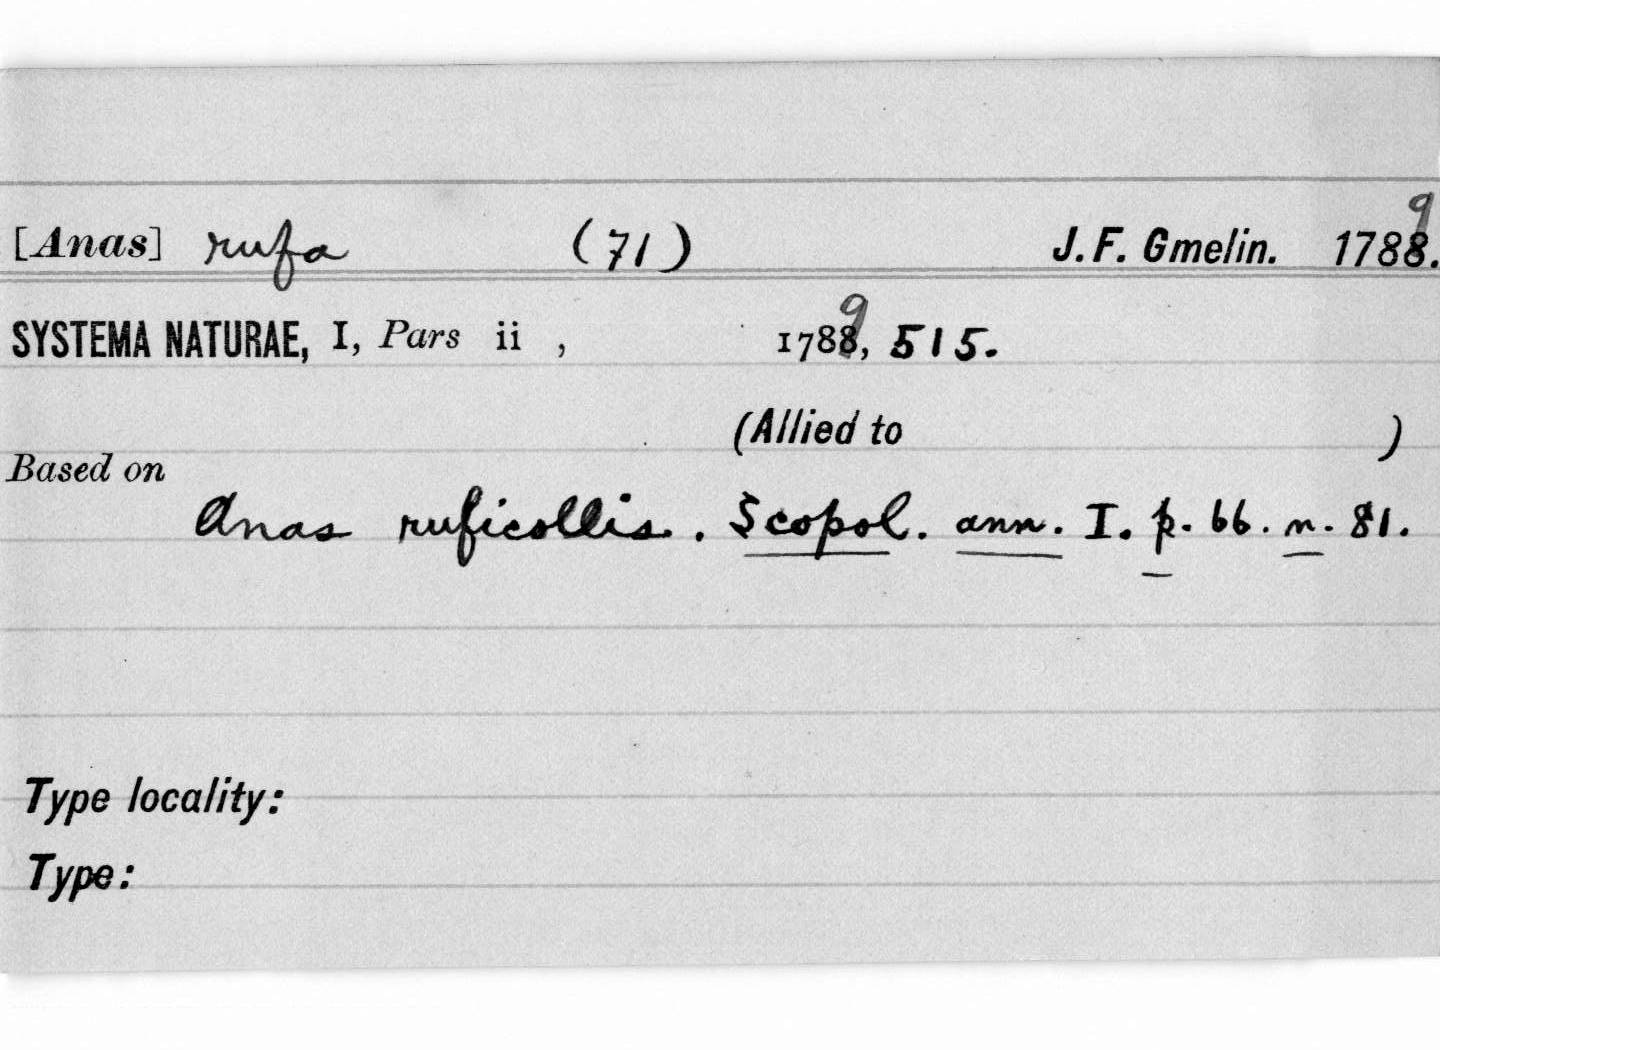 [Anas] rufa (71) J. F. Gmelin. 1789.
SYSTEMA NATURAE, I, Pars ii , 1789, 515.
(Allied to )
Based on
Anas ruficollis. Scopol. ann. I. p. 66. n. 81.
Type locality:
Type: